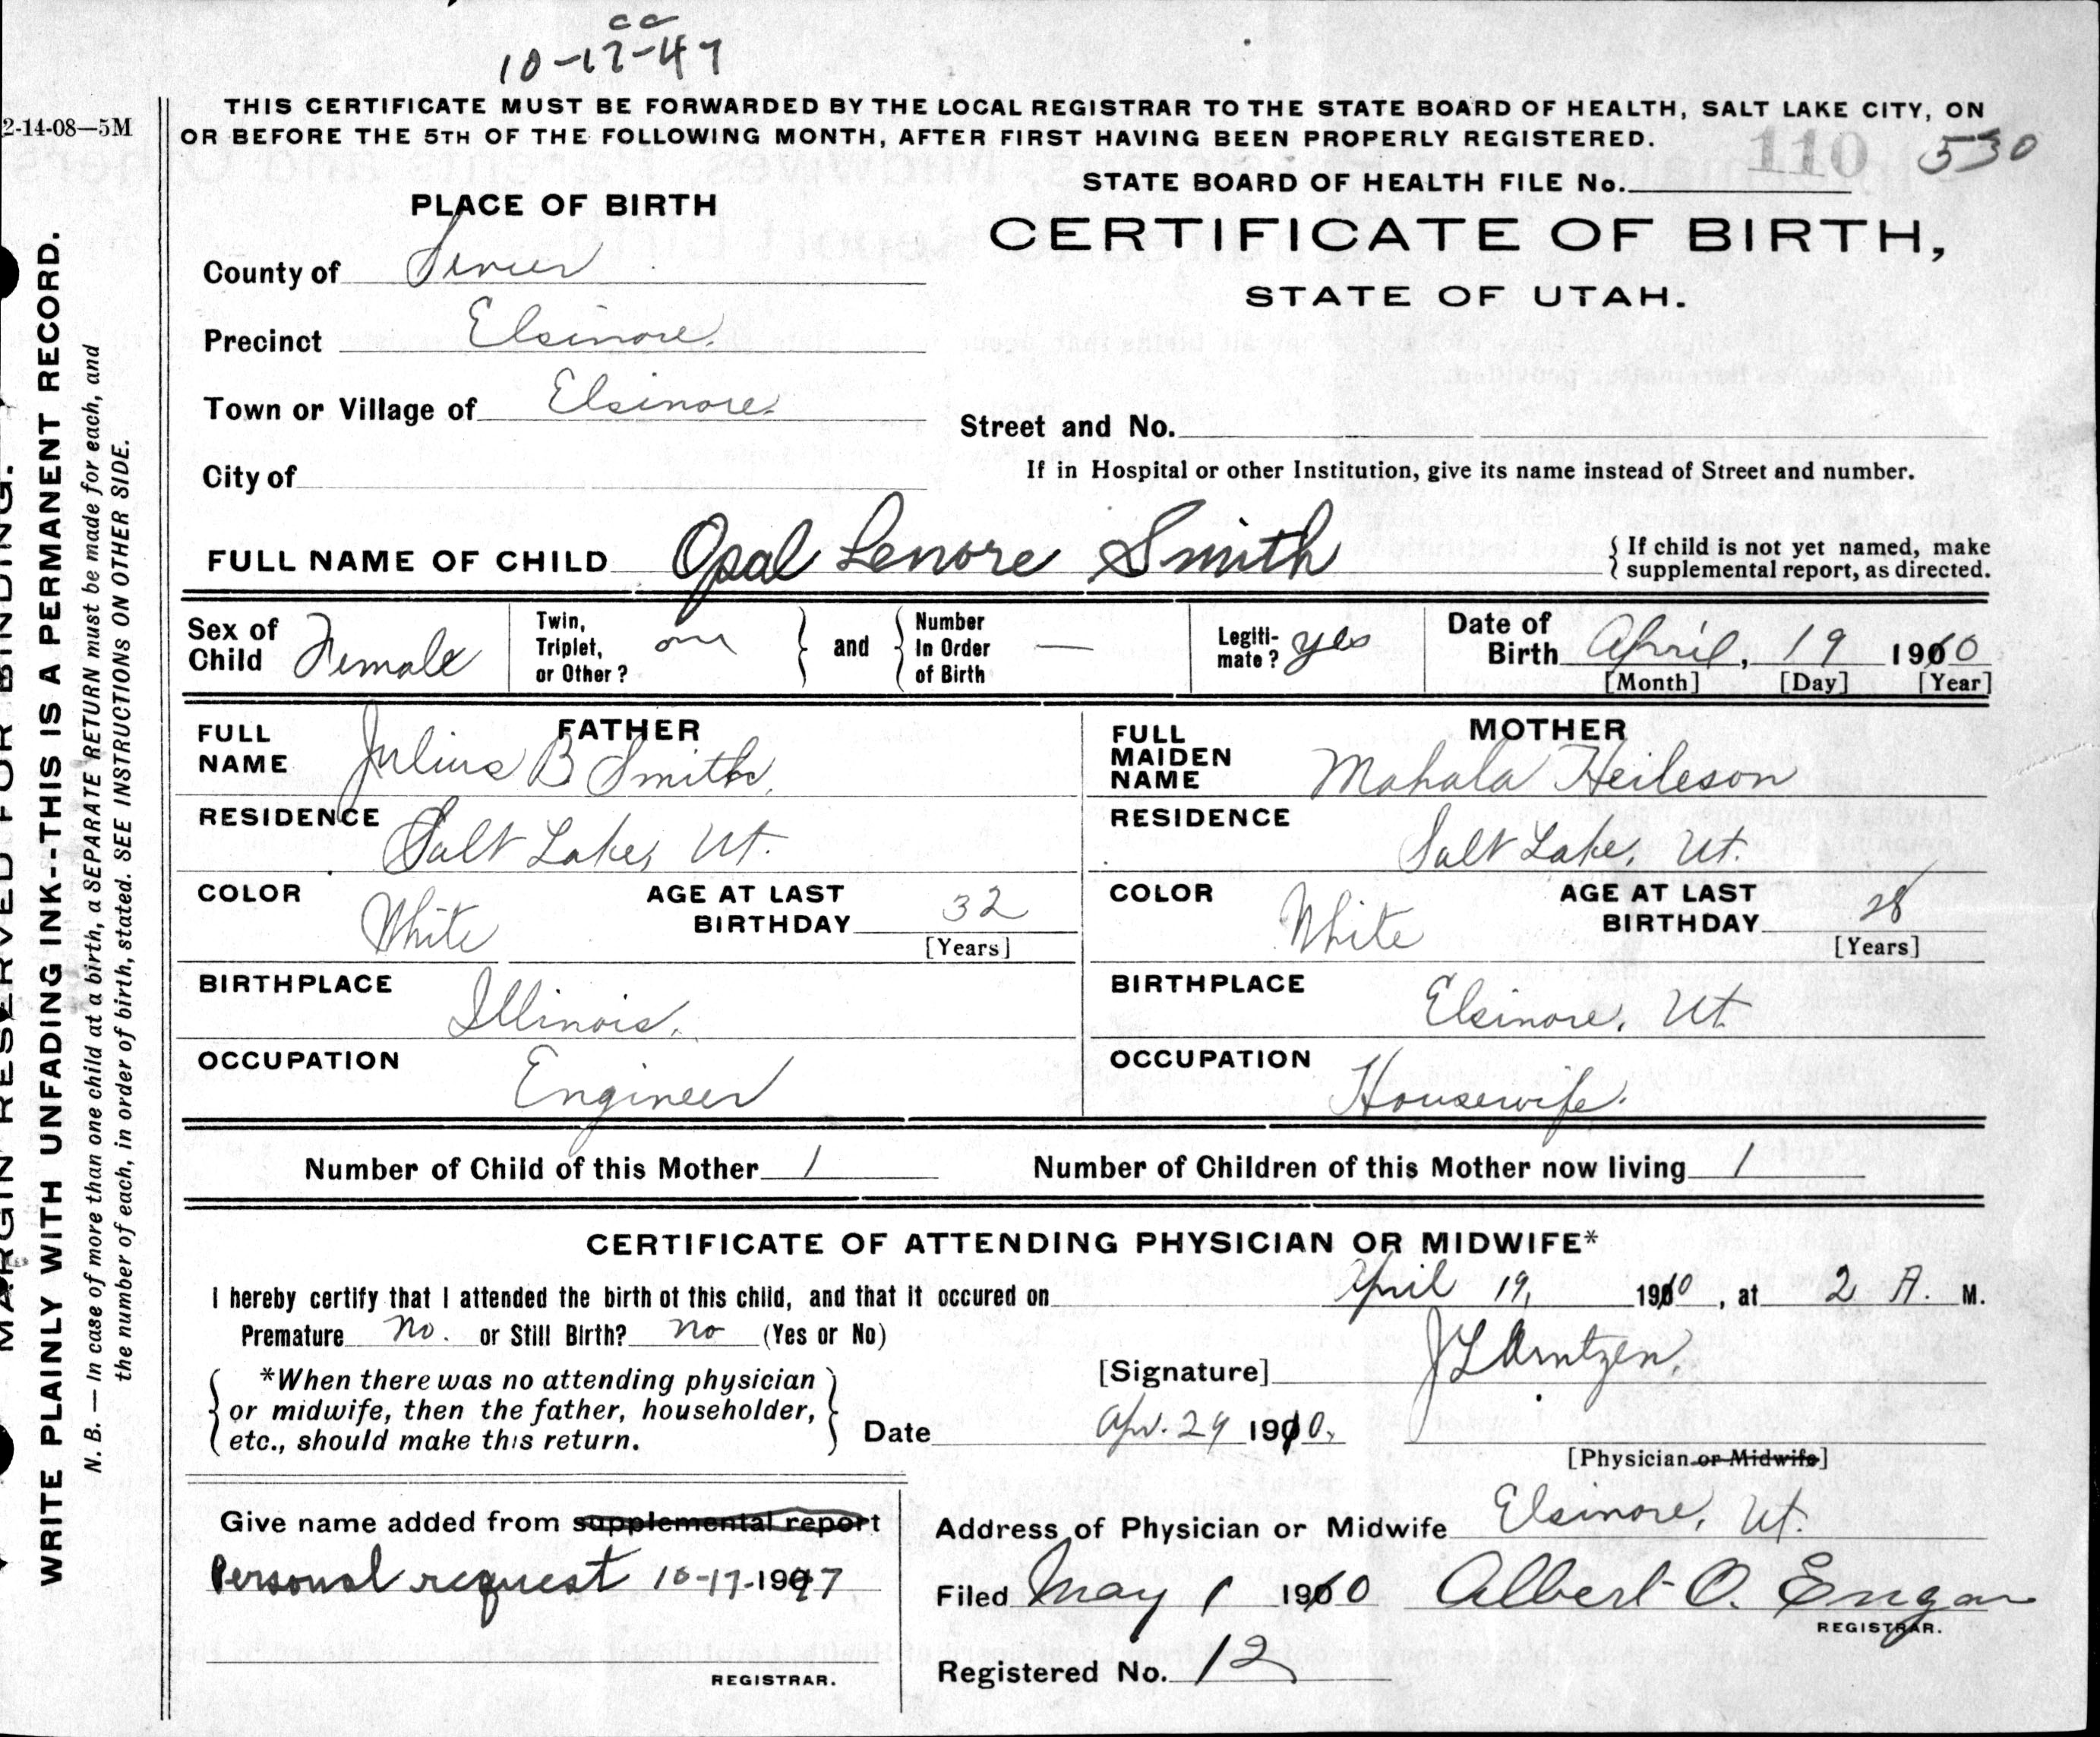 cc
10-17-47
2-14-08—5M
THIS CERTIFICATE MUST BE FORWARDED BY THE LOCAL REGISTRAR TO THE STATE BOARD OF HEALTH, SALT LAKE CITY, ON
OR BEFORE THE 5TH OF THE FOLLOWING MONTH, AFTER FIRST HAVING BEEN PROPERLY REGISTERED.
STATE BOARD OF HEALTH FILE No. 110 530
PLACE OF BIRTH
CERTIFICATE OF BIRTH,
STATE OF UTAH.
County of Sevier
Precinct Elsinore.
Town or Village of Elsinore.
Street and No.
City of
If in Hospital or other Institution, give its name instead of Street and number.
FULL NAME OF CHILD Opal Lenore Smith
If child is not yet named, make
supplemental report, as directed.
Sex of Child Female
Twin, Triplet, or Other? one and Number In Order of Birth —
Legiti-mate? yes
Date of Birth April, 19 1910
[Month] [Day] [Year]
FATHER
FULL NAME Julius B Smith.
RESIDENCE Salt Lake, Ut.
COLOR White AGE AT LAST BIRTHDAY 32
[Years]
BIRTHPLACE Illinois.
OCCUPATION Engineer
MOTHER
FULL MAIDEN NAME Mahala Heileson
RESIDENCE Salt Lake, Ut.
COLOR White AGE AT LAST BIRTHDAY 28
[Years]
BIRTHPLACE Elsinore, Ut.
OCCUPATION Housewife.
Number of Child of this Mother 1 Number of Children of this Mother now living 1
CERTIFICATE OF ATTENDING PHYSICIAN OR MIDWIFE*
I hereby certify that I attended the birth of this child, and that it occured on April 19, 1910, at 2 A. M.
Premature no. or Still Birth? no (Yes or No)
*When there was no attending physician
or midwife, then the father, householder,
etc., should make this return.
[Signature] J L Arntzen.
Date Apr. 29 1910.
[Physician or Midwife]
Give name added from supplemental report
Personal request 10-17-1947
REGISTRAR.
Address of Physician or Midwife Elsinore, Ut.
Filed May 1 1910 Albert O. Engar
REGISTRAR.
Registered No. 12
MARGIN RESERVED FOR BINDING.
WRITE PLAINLY WITH UNFADING INK--THIS IS A PERMANENT RECORD.
N. B. — In case of more than one child at a birth, a SEPARATE RETURN must be made for each, and
the number of each, in order of birth, stated. SEE INSTRUCTIONS ON OTHER SIDE.